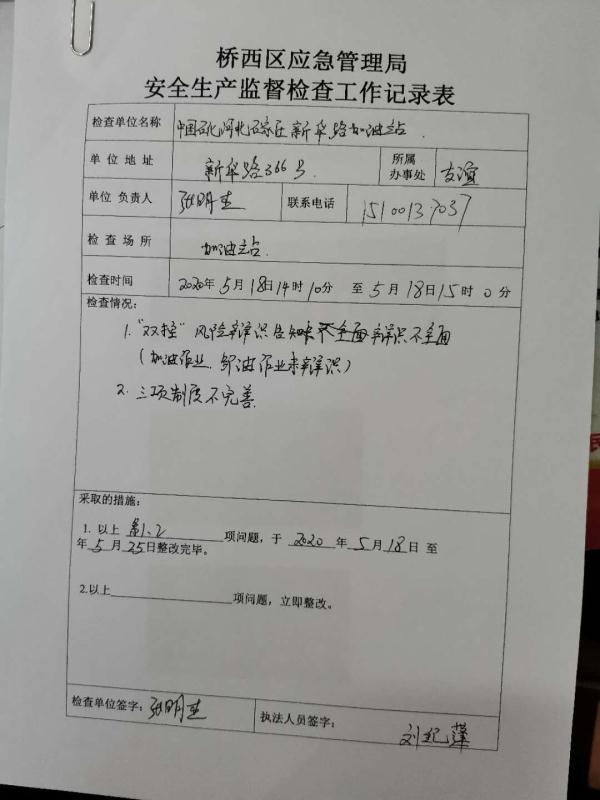 桥西区应急管理局
安全生产监督检查工作记录表
检查单位名称 中国石化河北石家庄新华路加油站.
单位地址 新华路366号. 所属办事处 友谊
单位负责人 张明生 联系电话 15100137037
检查场所 加油站.
检查时间 2020年5月18日14时10分 至5月18日15时0分
检查情况:
1. "双控"风险辩识告知 辩识不全面
(加油作业、卸油作业未辩识)
2. 三项制度不完善.
采取的措施:
1. 以上 第1、2 项问题，于 2020 年 5 月 18 日 至
年 5 月 25 日整改完毕。
2.以上 项问题，立即整改。
检查单位签字: 张明生 执法人员签字: 刘纪萍